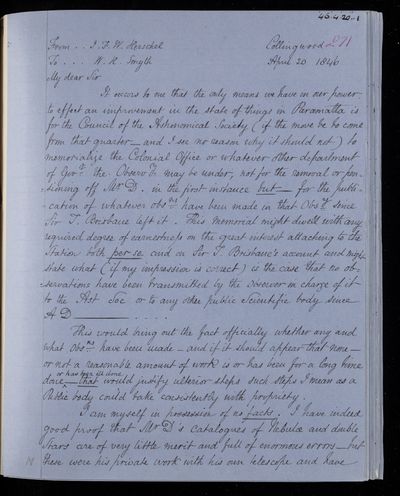 45.4.20.1
271
From . . J. F. W. Herschel
Collingwood
To . . . . W. R. Smyth
April 20 1846
My dear Sir
It occurs to me that the only means we have in our power
to effect an improvement in the state of things in Paramatta is
for the Council of the Astronomical Society (if the move be to come
from that quarter – and I see no reason why it should not) to
memorialize the Colonial Office or whatever other department
of Govt. the Observy. may be under, not for the removal or pen-
-sioning off Mr D. in the first instance but – for the publi-
-cation of whatever obsns. have been made in that Obsy. since
Sir T. Brisbane left it. This memorial might dwell with any
required degree of earnestness on the great interest attaching to the
Station both per se and on Sir T. Brisbane's account and might
state what (if my impression is correct) is the case that no ob-
-servations have been transmitted by the observer in charge of it
to the Ast Soc or to any other public Scientific body since
A D
This would bring out the fact officially whether any and
what Obsns. have been made – and if it should appear that none –
or not a reasonable amount of work is or has been for a long time
or has been ill done
done – that would justify ulterior steps such steps I mean as a
Public body could take consistently with propriety.
I am myself in possession of no facts. I have indeed
good proof that Mr D's catalogues of Nebulæ and double
Stars are of very little merit and full of enormous errors – but
these were his private work with his own telescope and have